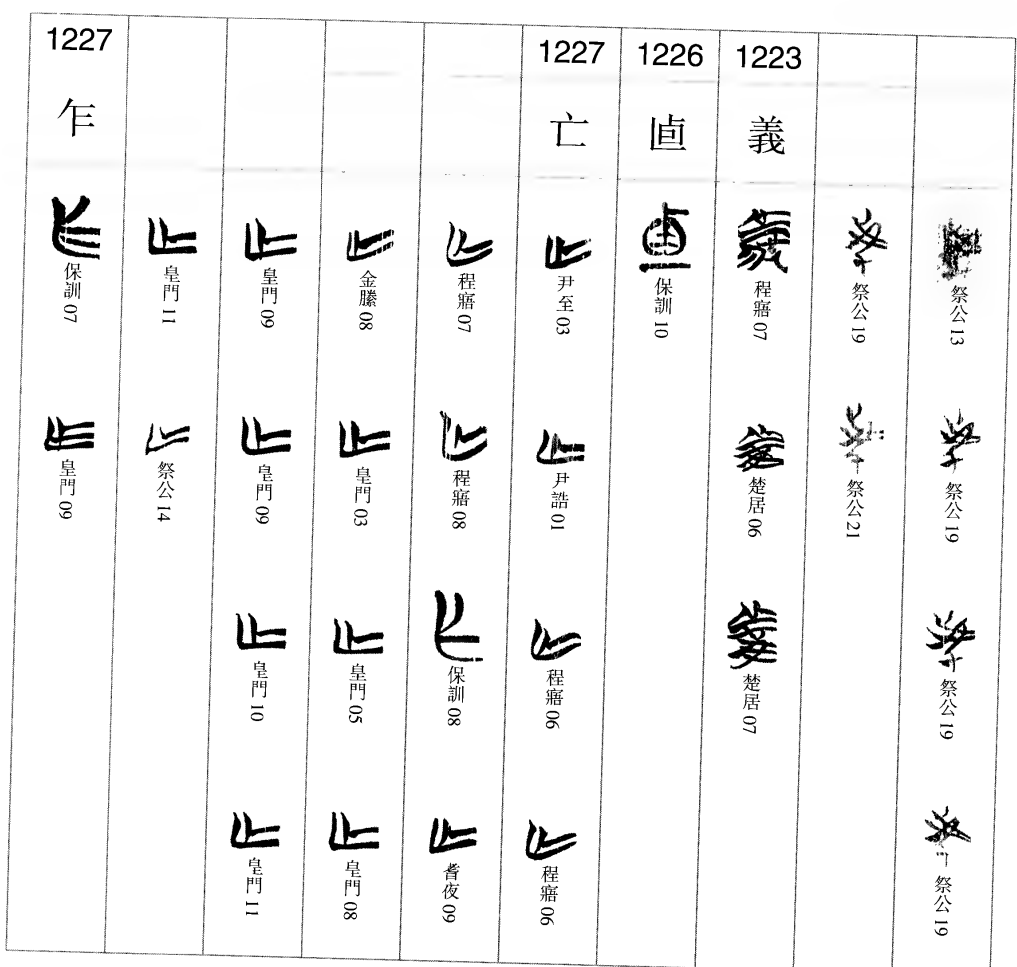 祭公 13
祭公 19
祭公 19
祭公 19
祭公 19
祭公 21
1223
義
程寤 07
楚居 06
楚居 07
1226
直
保訓 10
1227
亡
尹至 03
尹誥 01
程寤 06
程寤 06
程寤 07
程寤 08
保訓 08
耆夜 09
金縢 08
皇門 03
皇門 05
皇門 08
皇門 09
皇門 09
皇門 10
皇門 11
皇門 11
祭公 14
1227
乍
保訓 07
皇門 09